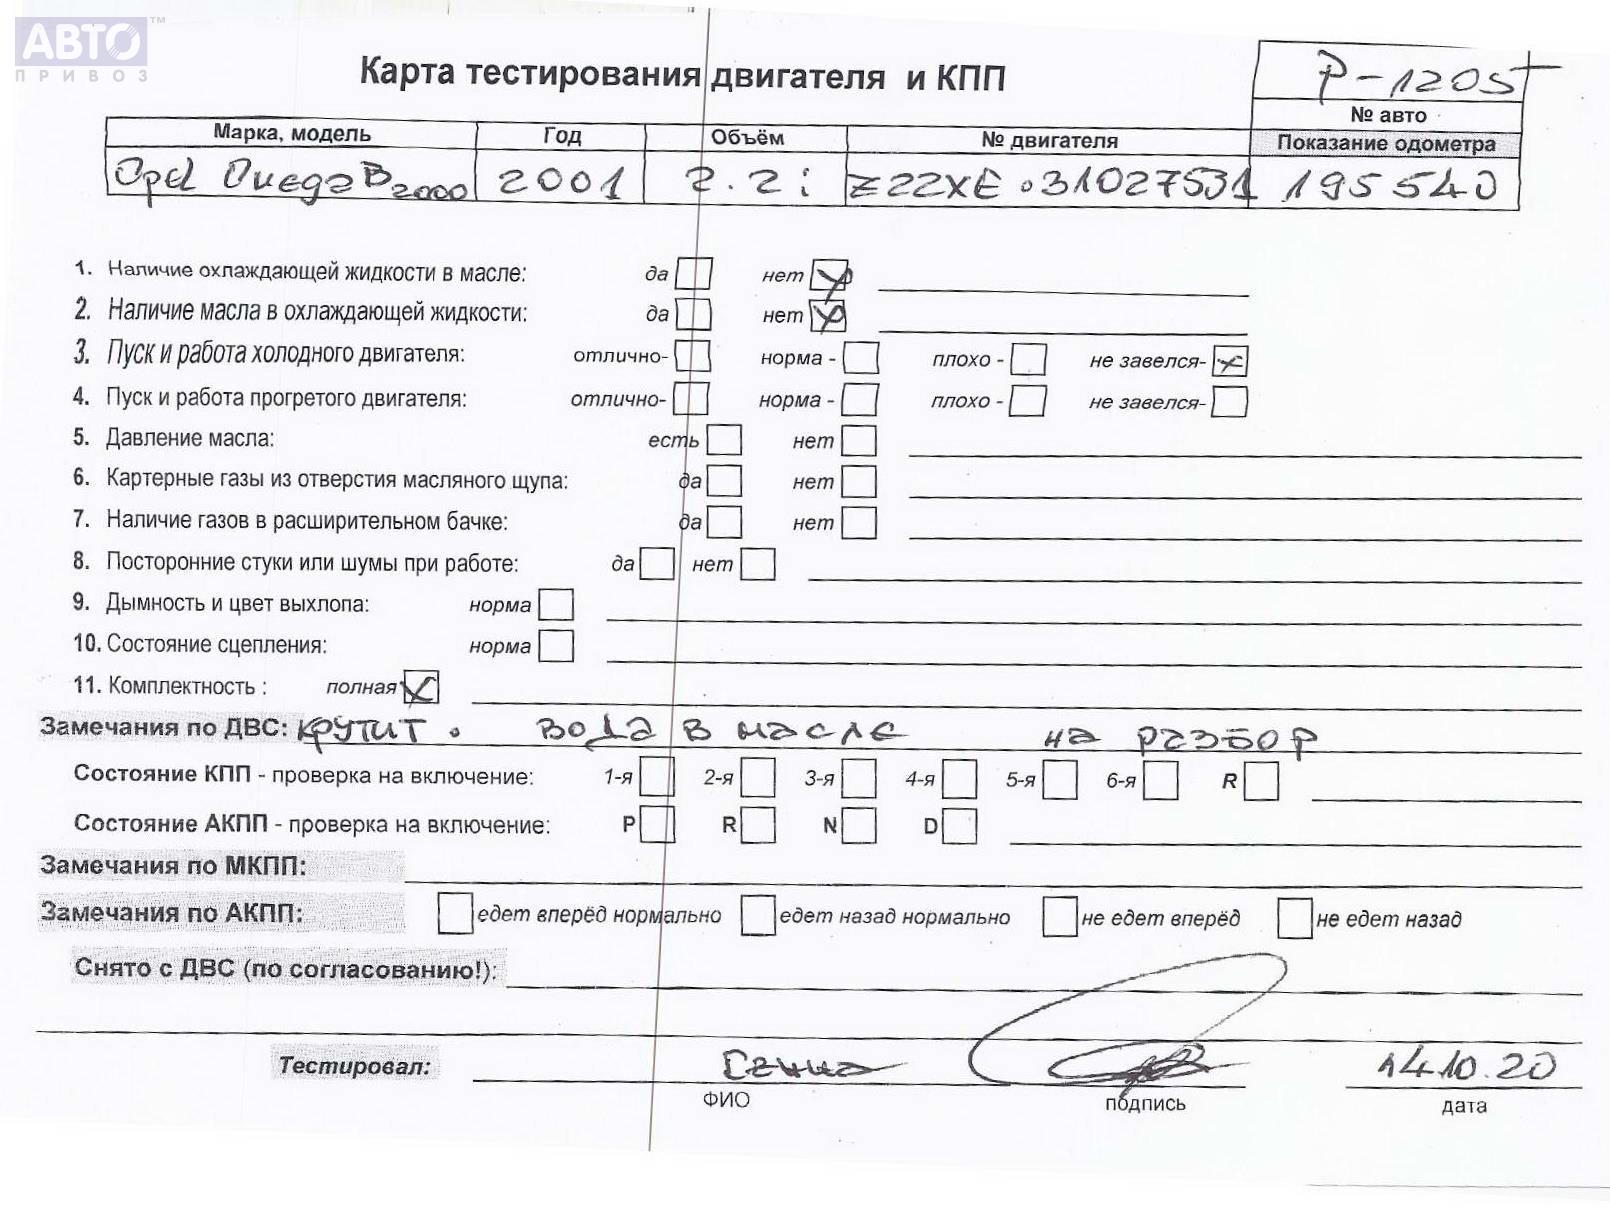 АВТО™
ПРИВОЗ
Карта тестирования двигателя и КПП
P-1205
№ авто
Марка, модель Год Объём № двигателя Показание одометра
Opel Омега B 2000 2001 2.2i Z22XE 031027531 195540
1. Наличие охлаждающей жидкости в масле: да нет
2. Наличие масла в охлаждающей жидкости: да нет
3. Пуск и работа холодного двигателя: отлично- норма - плохо - не завелся-
4. Пуск и работа прогретого двигателя: отлично- норма - плохо - не завелся-
5. Давление масла: есть нет
6. Картерные газы из отверстия масляного щупа: да нет
7. Наличие газов в расширительном бачке: да нет
8. Посторонние стуки или шумы при работе: да нет
9. Дымность и цвет выхлопа: норма
10. Состояние сцепления: норма
11. Комплектность : полная
Замечания по ДВС: крутит. вода в масле на разбор
Состояние КПП - проверка на включение: 1-я 2-я 3-я 4-я 5-я 6-я R
Состояние АКПП - проверка на включение: P R N D
Замечания по МКПП:
Замечания по АКПП: едет вперёд нормально едет назад нормально не едет вперёд не едет назад
Снято с ДВС (по согласованию!):
Тестировал: 14.10.20
ФИО подпись дата